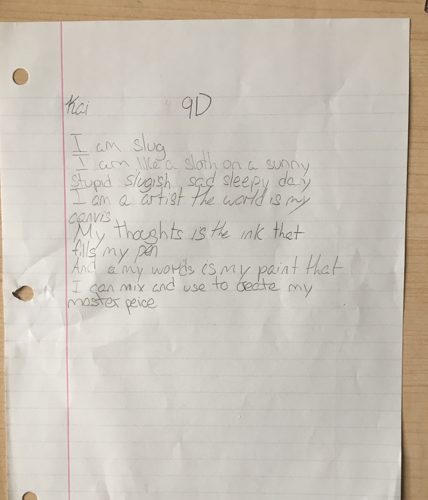 Kai 9D
I am slug
I am like a sloth on a sunny
stupid slugish, sad sleepy day
I am a artist the world is my
canvis
My thoughts is the ink that
fills my pen
And a my words is my paint that
I can mix and use to create my
master peice